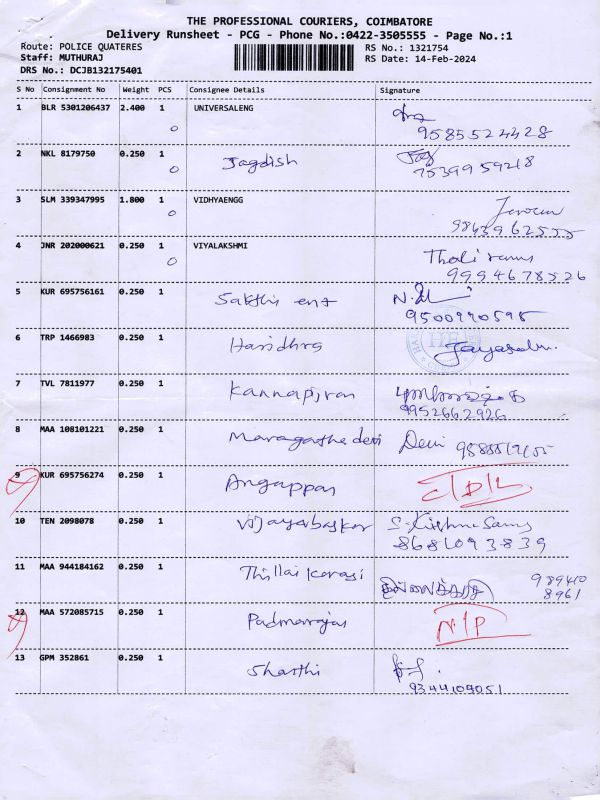 THE PROFESSIONAL COURIERS, COIMBATORE
Delivery Runsheet - PCG - Phone No.:0422-3505555 - Page No.:1
Route: POLICE QUATERES
RS No.: 1321754
Staff: MUTHURAJ
RS Date: 14-Feb-2024
DRS No.: DCJB132175401
S No Consignment No Weight PCS Consignee Details Signature
1 BLR 5301206437 2.400 1 UNIVERSALENG
0 9585524428
2 NKL 8179750 0.250 1 Jagdish
0 7539959218
3 SLM 339347995 1.800 1 VIDHYAENGG
0
4 JNR 202000621 0.250 1 VIYALAKSHMI
0 9994678526
5 KUR 695756161 0.250 1 Sakthi ent
9500990595
6 TRP 1466983 0.250 1 Haridhra
7 TVL 7811977 0.250 1 Kannapiran
9952662926
8 MAA 108101221 0.250 1 Maragatha devi Devi
9 KUR 695756274 0.250 1 Angappan C/D/L
10 TEN 2098078 0.250 1 Vijayabaskar S. Krishna Samy
8681093839
11 MAA 944184162 0.250 1 Thillai karasi 989410
8961
12 MAA 572085715 0.250 1 Padmarajan N/P
13 GPM 352861 0.250 1 Shasthi
9344109051